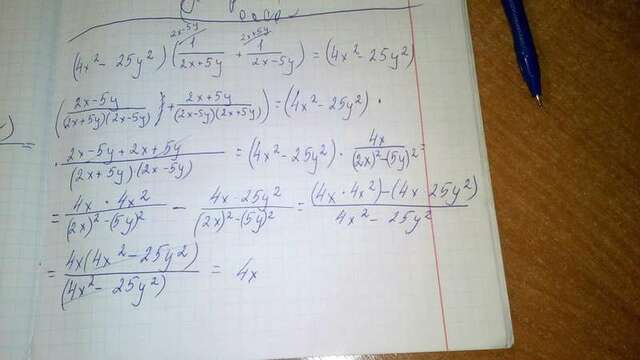 2x-5y 2x+5y
(4x² - 25y²) (1/(2x+5y) + 1/(2x-5y)) = (4x² - 25y²)
((2x-5y)/((2x+5y)(2x-5y)) + (2x+5y)/((2x-5y)(2x+5y))) = (4x² - 25y²) ·
· (2x-5y+2x+5y)/((2x+5y)(2x-5y)) = (4x² - 25y²) · 4x/((2x)²-(5y)²) =
= (4x · 4x²)/((2x)²-(5y)²) - (4x · 25y²)/((2x)²-(5y)²) = ((4x · 4x²)-(4x · 25y²))/(4x² - 25y²)
= (4x(4x² - 25y²))/((4x² - 25y²)) = 4x